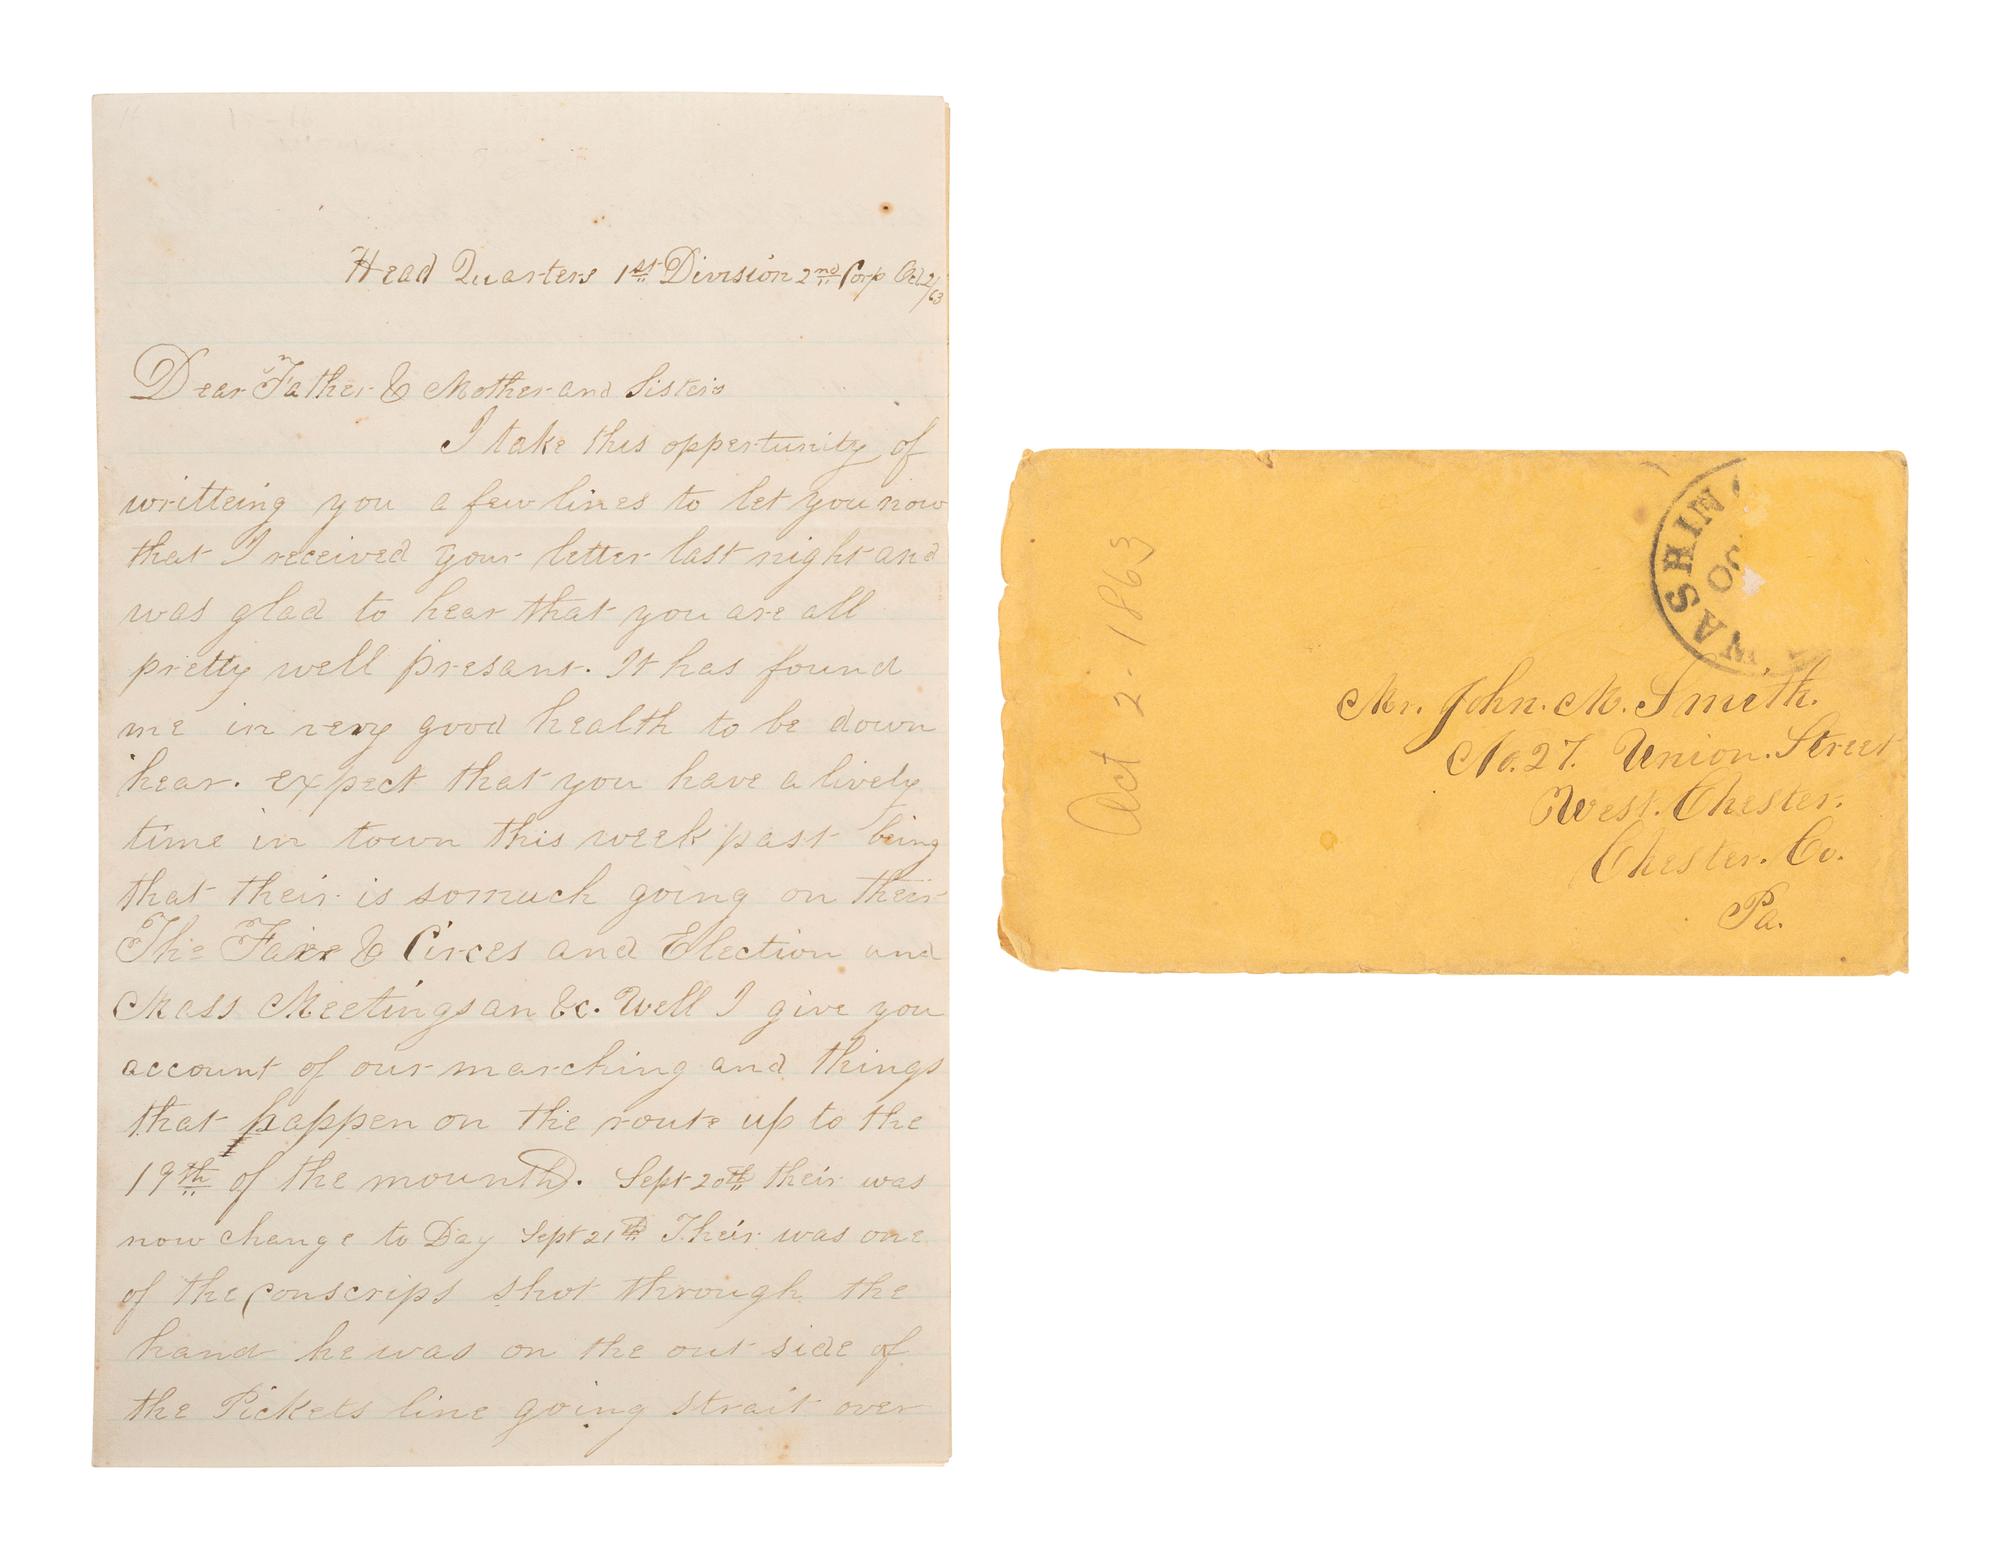 Head Quarters 1st Division 2nd Corp Oct 2/63
Dear Father & Mother and Sisters
I take this oppertunity of
writteing you a few lines to let you now
that I received your letter last night and
was glad to hear that you are all
pretty well presant. It has found
me in very good health to be down
hear. expect that you have a lively
time in town this week past being
that their is somuch going on their
The Faire & Circes and Election and
Mass Meetings an &c. Well I give you
account of our marching and things
that happen on the route up to the
19th of the mounth. Sept 20th their was
now change to Day Sept 21th Their was one
of the conscrips shot through the
hand he was on the out side of
the Pickets line going strait over
Oct 2-1863
WASHIN
Mr. John. M. Smith.
No. 27. Union. Street
West. Chester.
Chester. Co.
Pa.